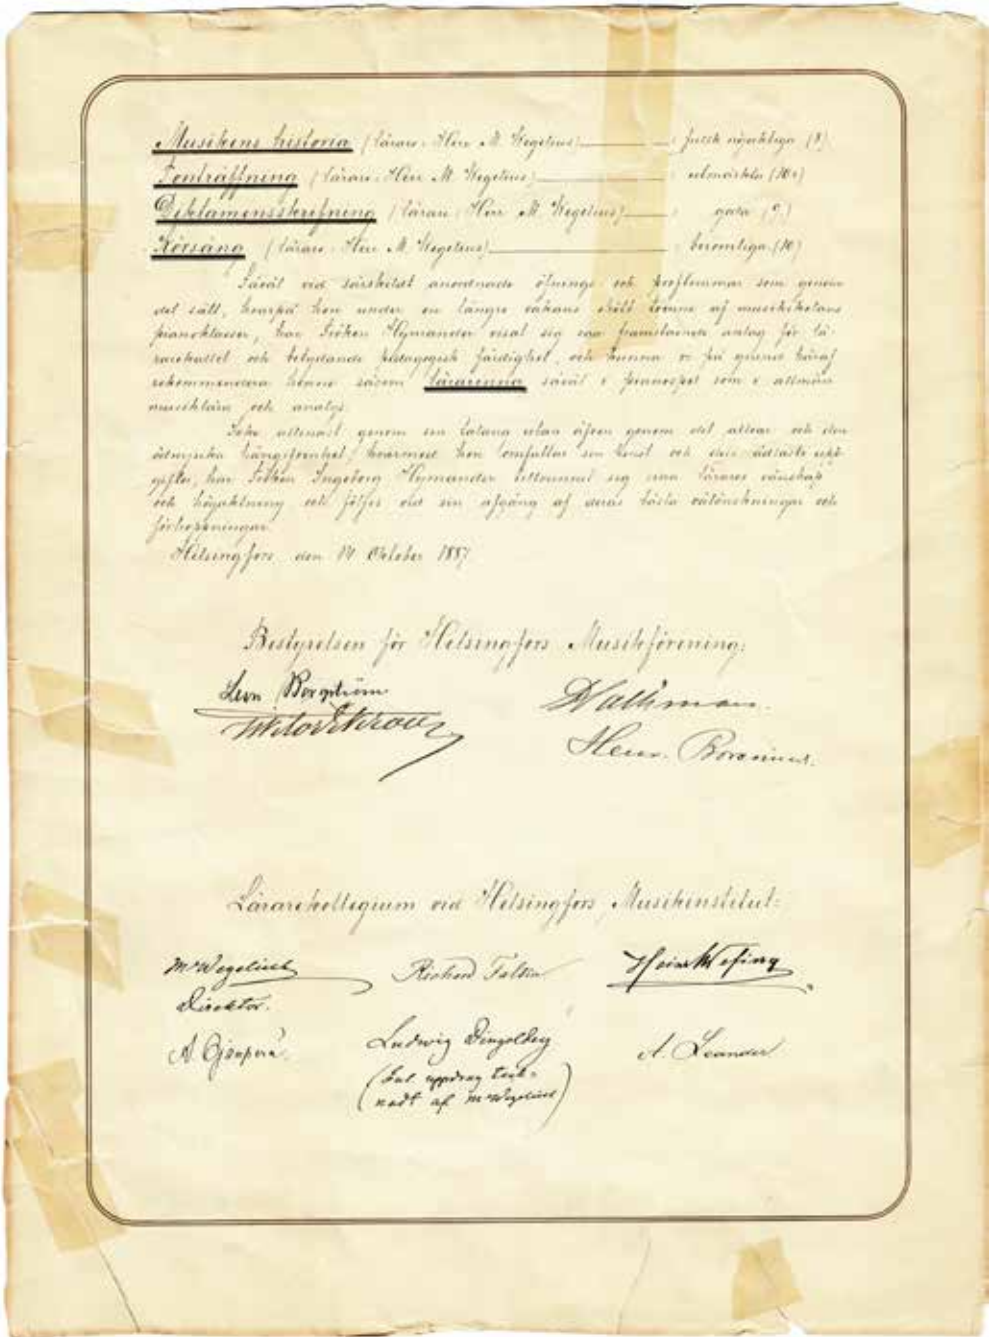 Musikens historia (lärare: Herr M. Wegelius) : fullt nöjaktiga (8)
Tonträffning (lärare: Herr M. Wegelius) : utmärkta (10+)
(lärare: Herr M. Wegelius) : goda (9)
Körsång (lärare: Herr M. Wegelius) : berömliga (10)
Såväl vid särskildt anordnade öfnings- och proflemmar som genom
det sätt, hvarpå hon under en längre vakans skött tvenne af musikskolans
pianoklasser, har Fröken Hymander visat sig ega framstående anlag för lä-
rarekallet och betydande pedagogisk färdighet, och kunna vi på grund häraf
rekommendera henne såsom lärarinna såväl i pianospel som i allmän
musiklära och analys.
Icke allenast genom sin talang utan äfven genom det allvar och den
ödmjuka hängifvenhet, hvarmed hon omfattar sin konst och dess ädlaste upp-
gifter, har Fröken Ingeborg Hymander tillvunnit sig sina lärares vänskap
och högaktning och följes vid sin afgång af deras bästa välönskningar och
förhoppningar.
Helsingfors, den 14 October 1887.
Bestyrelsen för Helsingfors Musikförening:
Leon Borgström
Wathman.
Henr. Borenius.
Lärarekollegium vid Helsingfors Musikinstitut:
M Wegelius Richard Faltin
Direktor.
Ludwig A. Leander
(Enl. uppdrag teck-
nadt af M Wegelius)